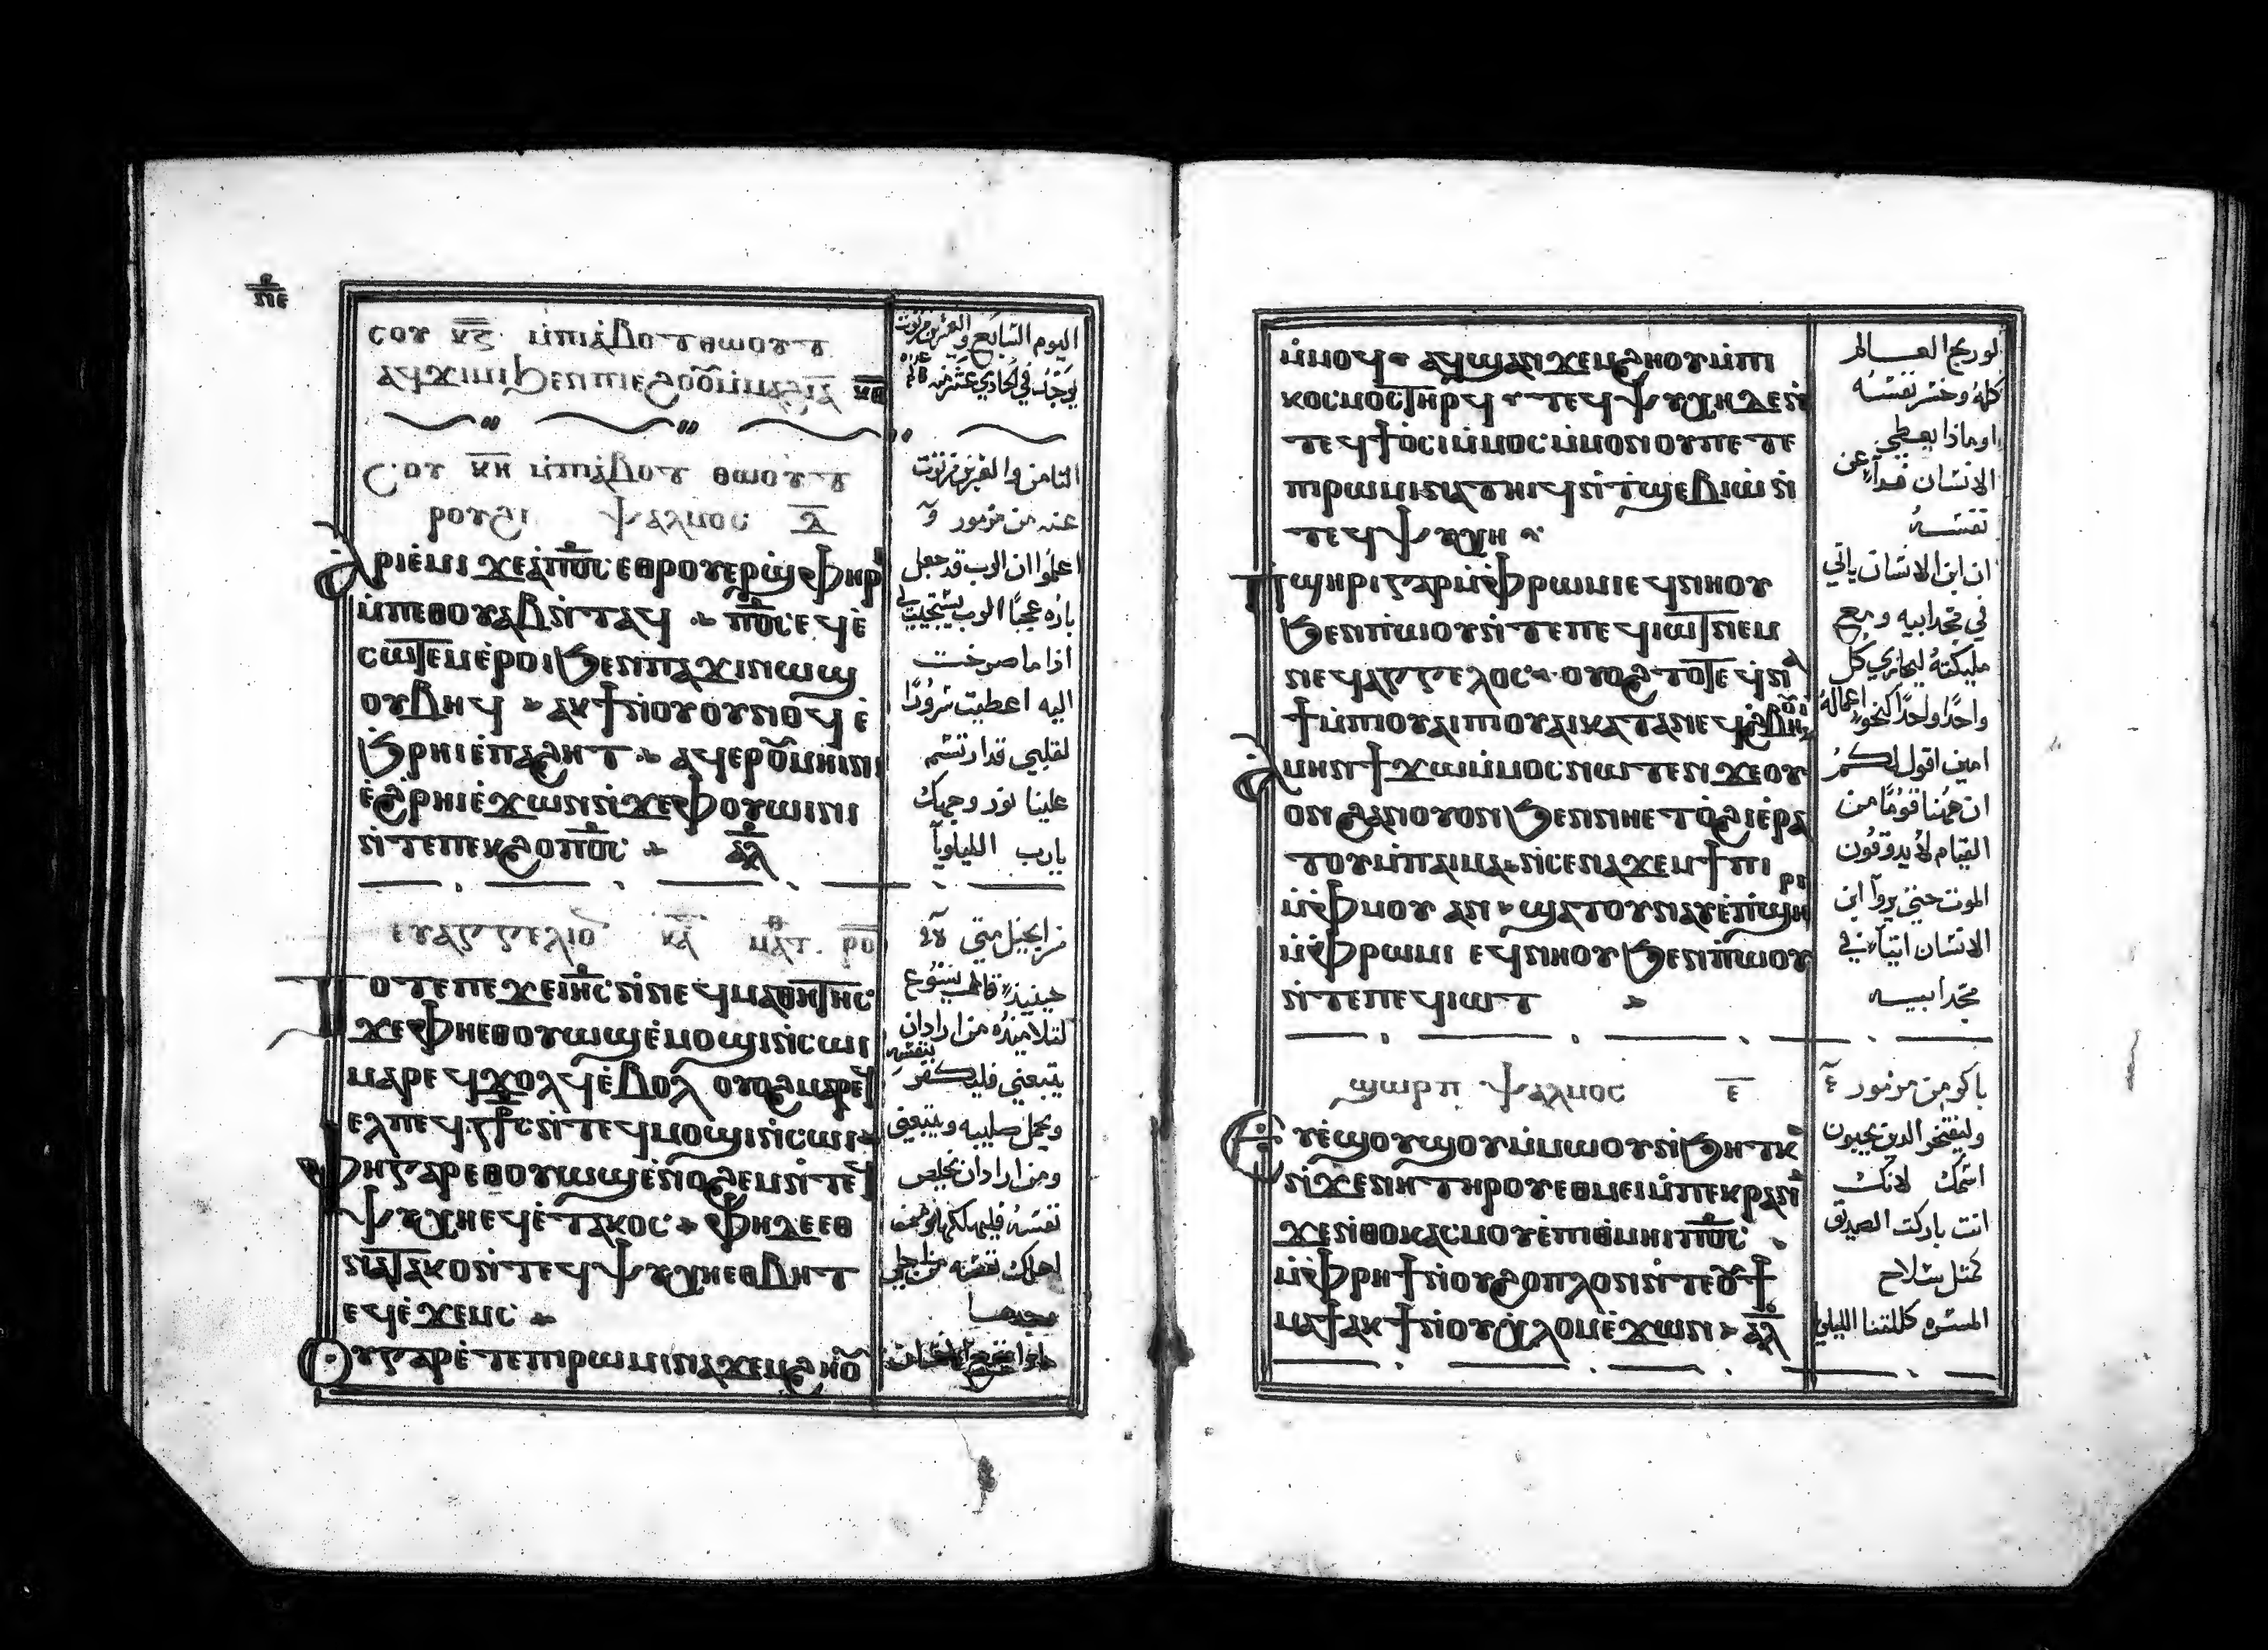 ⲡⲉ
ⲥⲟⲩ ⲕⲍ ⲙ̀ⲡⲓⲁ̀ⲃⲟⲧ ⲑⲱⲟⲩⲧ
ⲥⲟⲩ ⲕⲏ ⲙ̀ⲡⲓⲁ̀ⲃⲟⲩⲧ ⲑⲱⲟⲩⲧ
ⲣⲟⲩϩⲓ ⲯⲁⲗⲙⲟⲥ ⲇ
ⲁⲣⲓⲉ̀ⲙⲓ ϫⲉⲁ̀ⲡⲟ̅ⲥ̅ ⲉⲑⲣⲟⲩⲉⲣϣⲫⲏⲣⲓ
ⲙ̀ⲡⲉⲑⲟⲩⲁⲃ ⲛ̀ⲧⲁϥ ⲡⲟ̅ⲥ̅ ⲉϥⲉ̀
ⲥⲱⲧⲉⲙ ⲉ̀ⲣⲟⲓ ϧⲉⲛⲡⲁϫⲓⲛⲱϣ
ⲟⲩⲃⲏϥ ⲁⲕϯⲛⲟⲩⲟⲩⲛⲟϥ ⲉ̀
ϧⲣⲏⲓ ⲉ̀ⲡⲁϩⲏⲧ ⲁϥⲉⲣⲟ̅ⲙⲏⲓⲛⲓ
ⲉ̀ϩⲣⲏⲓ ⲉ̀ϫⲱⲛ ⲛ̀ϫⲉⲫⲟⲩⲱⲓⲛⲓ
ⲛ̀ⲧⲉⲡⲉⲕϩⲟ ⲡⲟ̅ⲥ̅ ⲁ̅ⲗ̅
ⲉⲩⲁⲅⲅⲉⲗⲓⲟ ⲕⲁ ⲙⲁⲧ ⲣⲟ
ⲧⲟⲧⲉ ⲡⲉϫⲉ ⲓⲏ̅ⲥ̅ ⲛ̀ⲛⲉϥⲙⲁⲑⲏⲧⲏⲥ
ϫⲉⲫⲏⲉⲑⲟⲩⲱϣ ⲉ̀ⲙⲟϣⲓ ⲛ̀ⲥⲱⲓ
ⲙⲁⲣⲉϥϫⲟⲗϥ ⲉ̀ⲃⲟⲗ ⲟⲩⲟϩ ⲙⲁⲣⲉϥ
ⲉⲗ ⲡⲉϥⲥ̅ⲧ̅ⲥ̅ ⲛ̀ⲧⲉϥⲙⲟϣⲓ ⲛ̀ⲥⲱⲓ
ⲫⲏⲅⲁⲣ ⲉⲑⲟⲩⲱϣ ⲉ̀ⲛⲟϩⲉⲙ ⲛ̀ⲧⲉϥ
ⲯⲩⲭⲏ ⲉϥⲉ̀ⲧⲁⲕⲟⲥ ⲫⲏⲇⲉ ⲉⲑ
ⲛⲁⲧⲁⲕⲟ ⲛ̀ⲧⲉϥⲯⲩⲭⲏ ⲉⲑⲃⲏⲧ
ⲉϥⲉ̀ϫⲉⲙⲥ
ⲟⲩⲅⲁⲣ ⲉ̀ⲧⲉ ⲡⲓⲣⲱⲙⲓ ⲛⲁϫⲉⲙϩⲏⲟⲩ
الثامن والعشرين من توت
عنه من مزمور
اعلموا ان الرب قد جعل
باره عجبا الرب يستجيب لي
اذا ما صرخت
اليه اعطيت سرورا
لقلبي قد ارتسم
علينا نور وجهك
يارب الليلويا
من انجيل متي
حينيذ قال يسوع
لتلاميذه من اراد ان
يتبعني فليكفر بنفسه
ويحمل صليبه ويتبعني
ومن اراد ان يخلص
نفسه فليهلكها ومن
اهلك نفسه من اجلي
يجدها
ⲙ̀ⲙⲟϥ ⲁϥϣⲁⲛϫⲉⲙϩⲏⲟⲩ ⲙ̀ⲡⲓ
ⲕⲟⲥⲙⲟⲥ ⲧⲏⲣϥ ⲧⲉϥⲯⲩⲭⲏ ⲇⲉ ⲛ̀
ⲧⲉϥϯⲟ̀ⲥⲓ ⲙ̀ⲙⲟⲥ ⲙ̀ⲙⲟⲛ ⲟⲩ ⲡⲉⲧⲉ
ⲡⲓⲣⲱⲙⲓ ⲛⲁⲧⲏⲓϥ ⲛ̀ⲧϣⲉⲃⲓⲱ ⲛ̀
ⲧⲉϥⲯⲩⲭⲏ
ⲡϣⲏⲣⲓ ⲅⲁⲣ ⲙ̀ⲫⲣⲱⲙⲓ ⲉϥⲛⲏⲟⲩ
ϧⲉⲛⲡⲱⲟⲩ ⲛ̀ⲧⲉⲡⲉϥⲓⲱⲧ ⲛⲉⲙ
ⲛⲉϥⲁⲅⲅⲉⲗⲟⲥ ⲟⲩⲟϩ ⲧⲟⲧⲉ ϥⲛⲁ
ϯ ⲙ̀ⲡⲓⲟⲩⲁⲓ ⲡⲓⲟⲩⲁⲓ ⲕⲁⲧⲁ ⲛⲉϥϩ̀ⲃⲏⲟⲩⲓ
ⲁⲙⲏⲛ ϯϫⲱ ⲙ̀ⲙⲟⲥ ⲛⲱⲧⲉⲛ ϫⲉⲟⲩ
ⲟⲛ ϩⲁⲛⲟⲩⲟⲛ ϧⲉⲛⲛⲏⲉⲧⲟ̀ϩⲓ ⲉ̀ⲣⲁ
ⲧⲟⲩ ⲙ̀ⲡⲁⲓⲙⲁ ⲛ̀ⲥⲉⲛⲁϫⲉⲙϯⲡⲓ
ⲙ̀ⲫⲙⲟⲩ ⲁⲛ ϣⲁⲧⲟⲩⲛⲁⲩ ⲉ̀ⲡϣⲏⲣⲓ
ⲙ̀ⲫⲣⲱⲙⲓ ⲉϥⲛⲏⲟⲩ ϧⲉⲛⲡⲱⲟⲩ
ⲛ̀ⲧⲉⲡⲉϥⲓⲱⲧ
ϣⲱⲣⲡ ⲯⲁⲗⲙⲟⲥ ⲉ
ⲉⲩⲉ̀ϣⲟⲩϣⲟⲩ ⲙ̀ⲙⲱⲟⲩ ⲛ̀ϧⲏⲧⲕ
ⲛ̀ϫⲉⲛⲏ ⲧⲏⲣⲟⲩ ⲉⲑⲙⲉⲓ ⲙ̀ⲡⲉⲕⲣⲁⲛ
ϫⲉⲛ̀ⲑⲟⲕ ⲁⲕⲥⲙⲟⲩ ⲉ̀ⲡⲓⲑⲙⲏⲓ ⲡⲟ̅ⲥ̅
ⲙ̀ⲫⲣⲏϯ ⲛⲟⲩϩⲟⲡⲗⲟⲛ ⲛ̀ⲧⲉⲟ̅ϯ
ⲙⲁϯ ⲁⲕϯ ⲛⲟⲩⲭⲗⲟⲙ ⲉ̀ϫⲱⲛ ⲁ̅ⲗ̅
لو ربح العالم
كله وخسر نفسه
او ماذا يعطي
الانسان فداء عن
نفسه
ان ابن الانسان ياتي
في مجد ابيه ومع
مليكته ليجازي كل
واحدا واحدا كنحو اعماله
امين اقول لكم
ان ههنا قوما من
القيام لا يذوقون
الموت حتي يروا ابن
الانسان اتيا في
مجد ابيه
باكر من مزمور
وليفتخر الذين يحبون
اسمك لانك
انت باركت الصديق
كمثل سلاح
المسره كللتنا الليلي